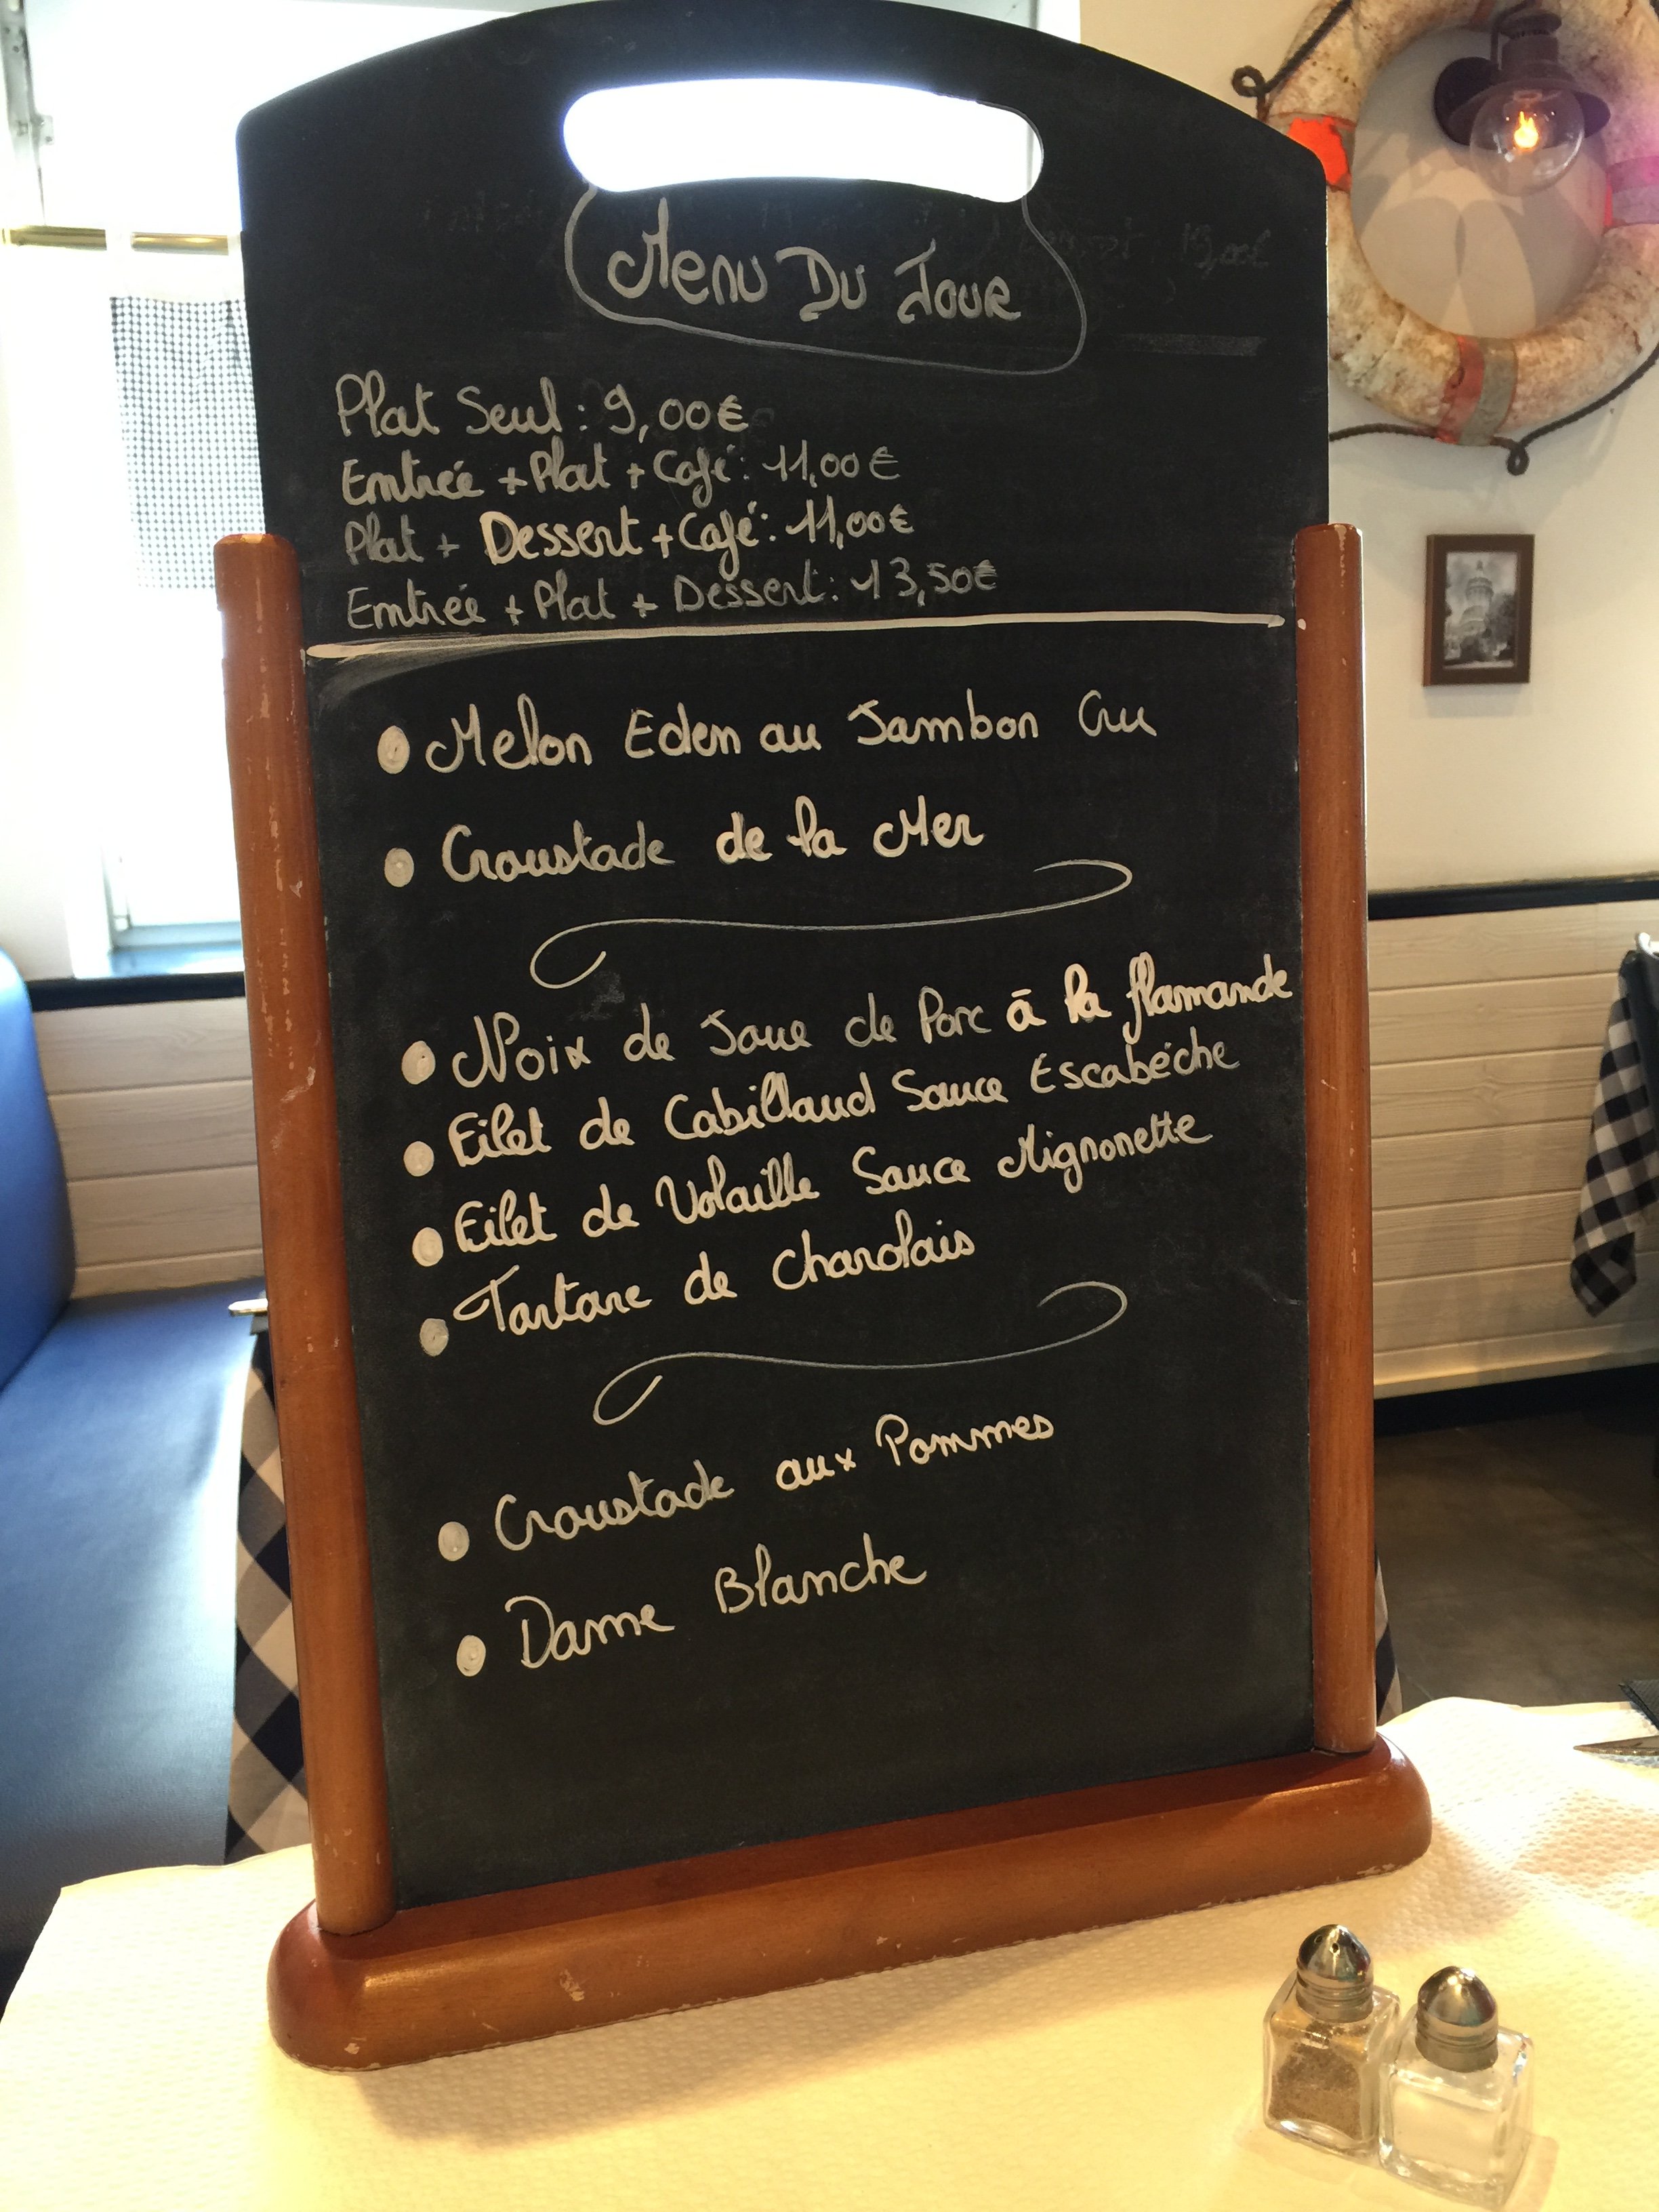 Menu Du Jour
Plat Seul : 9,00€
Entrée + Plat + Café : 11,00€
Plat + Dessert + Café : 11,00€
Entrée + Plat + Dessert : 13,50€
• Melon Eden au Jambon Cru
• Croustade de la Mer
• Noix de Joue de Porc à la flamande
• Filet de Cabillaud Sauce Escabéche
• Filet de Volaille Sauce Mignonette
• Tartare de Charolais
• Croustade aux Pommes
• Dame Blanche